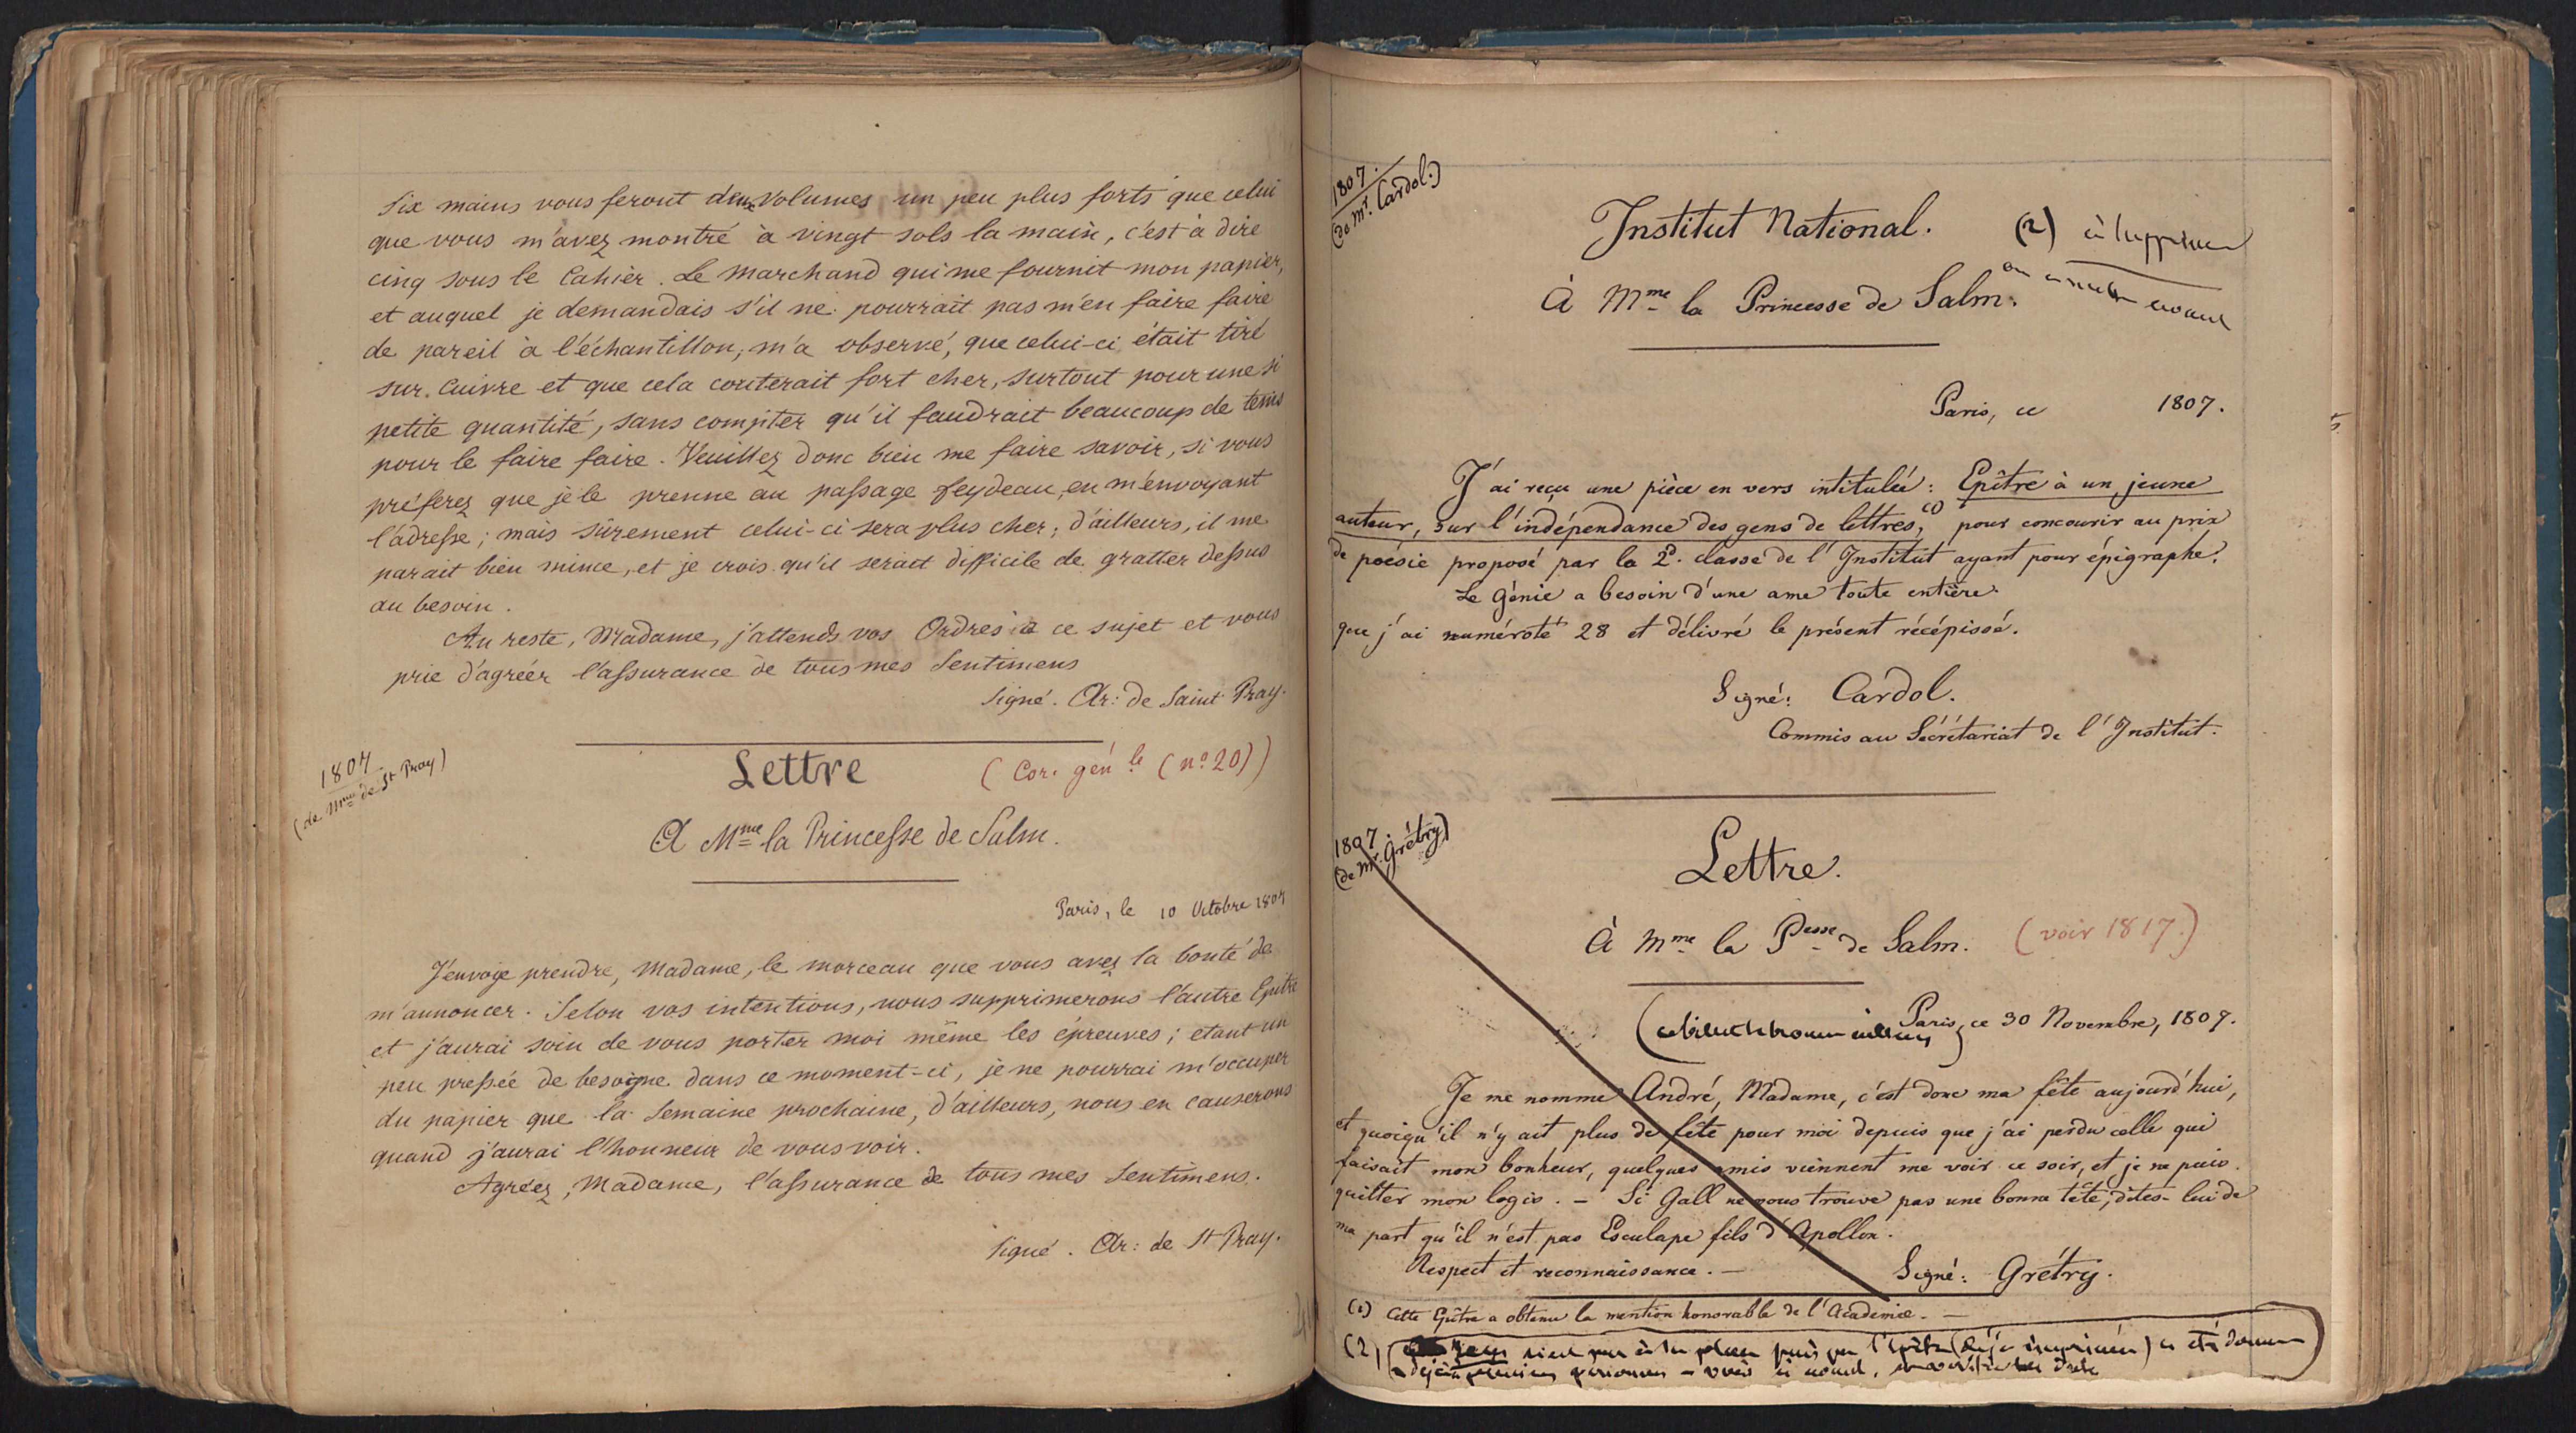 Six mains vous feront deux Volumes un peu plus forts que celui
que vous m'avez montré à vingt sols la main, c'est à dire
cinq sous le Cahier. Le Marchand qui me fournit mon papier,
et auquel je demandais s'il ne pourrait pas m'en faire faire
de pareil à l'échantillon, m'a observé, que celui-ci était tiré
sur cuivre et que cela couterait fort cher, surtout pour une si
petite quantité, sans compter qu'il faudrait beaucoup de tems
pour le faire faire. Veuillez donc bien me faire savoir, si vous
préferez que je le prenne au passage feydeau, en m'envoyant
l'adresse; mais sûrement celui-ci sera plus cher; d'ailleurs, il me
parait bien mince, et je crois qu'il serait difficile de gratter dessus
au besoin.
Au reste, Madame, j'attends vos Ordres à ce sujet et vous
prie d'agréer l'assurance de tous mes Sentimens
Signé. Ar: de Saint Pray.
1807
(de Mme de St Pray)
Lettre (Cor. gén le (nº 20))
A Mme la Princesse de Salm.
Paris, le 10 Octobre 1807
J'envoye prendre, Madame, le morceau que vous avez la bonté de
m'annoncer. Selon vos intentions, nous supprimerons l'autre Epitre
et j'aurai soin de vous porter moi même les épreuves; etant un
peu pressée de besoigne dans ce moment-ci, je ne pourrai m'occuper
du papier que la Semaine prochaine, d'ailleurs, nous en causerons
quand j'aurai l'honneur de vous voir.
Agréez, Madame, l'assurance de tous mes Sentimens.
Signé. Ar: de St Pray.
1807.
(de Mr. Cardol.)
Institut National. (2) à supprimer
À Mme la Princesse de Salm. ou
Paris, ce 1807.
J'ai reçu une pièce en vers intitulée: Epître à un jeune
auteur, sur l'indépendance des gens de lettres, (1) pour concourir au prix
de poésie proposé par la 2e. classe de l'Institut ayant pour épigraphe.
Le Génie a besoin d'une ame toute entière.
que j'ai numéroté 28 et délivré le présent récépissé.
Signé: Cardol.
Commis au Sécrétariat de l'Institut.
1807.
(de Mr. Grétry)
Lettre.
À Mme la Pesse de Salm. (voir 1817.)
Paris, ce 30 Novembre, 1807.
Je me nomme André, Madame, c'est donc ma fête aujourd'hui,
et quoiqu'il n'y ait plus de fête pour moi depuis que j'ai perdu celle qui
faisait mon bonheur, quelques amis viennent me voir ce soir, et je ne puis
quitter mon logis. – Si Gall ne vous trouve pas une bonne tête, dites-lui de
ma part qu'il n'est pas Esculape fils d'Apollon.
Respect et reconnaissance. –
Signé: Grétry.
(1) Cette Epître a obtenu la mention honorable de l'Academie. –
(2) l'épître (déjà imprimée) a été
déjà plusieurs personnes – voir